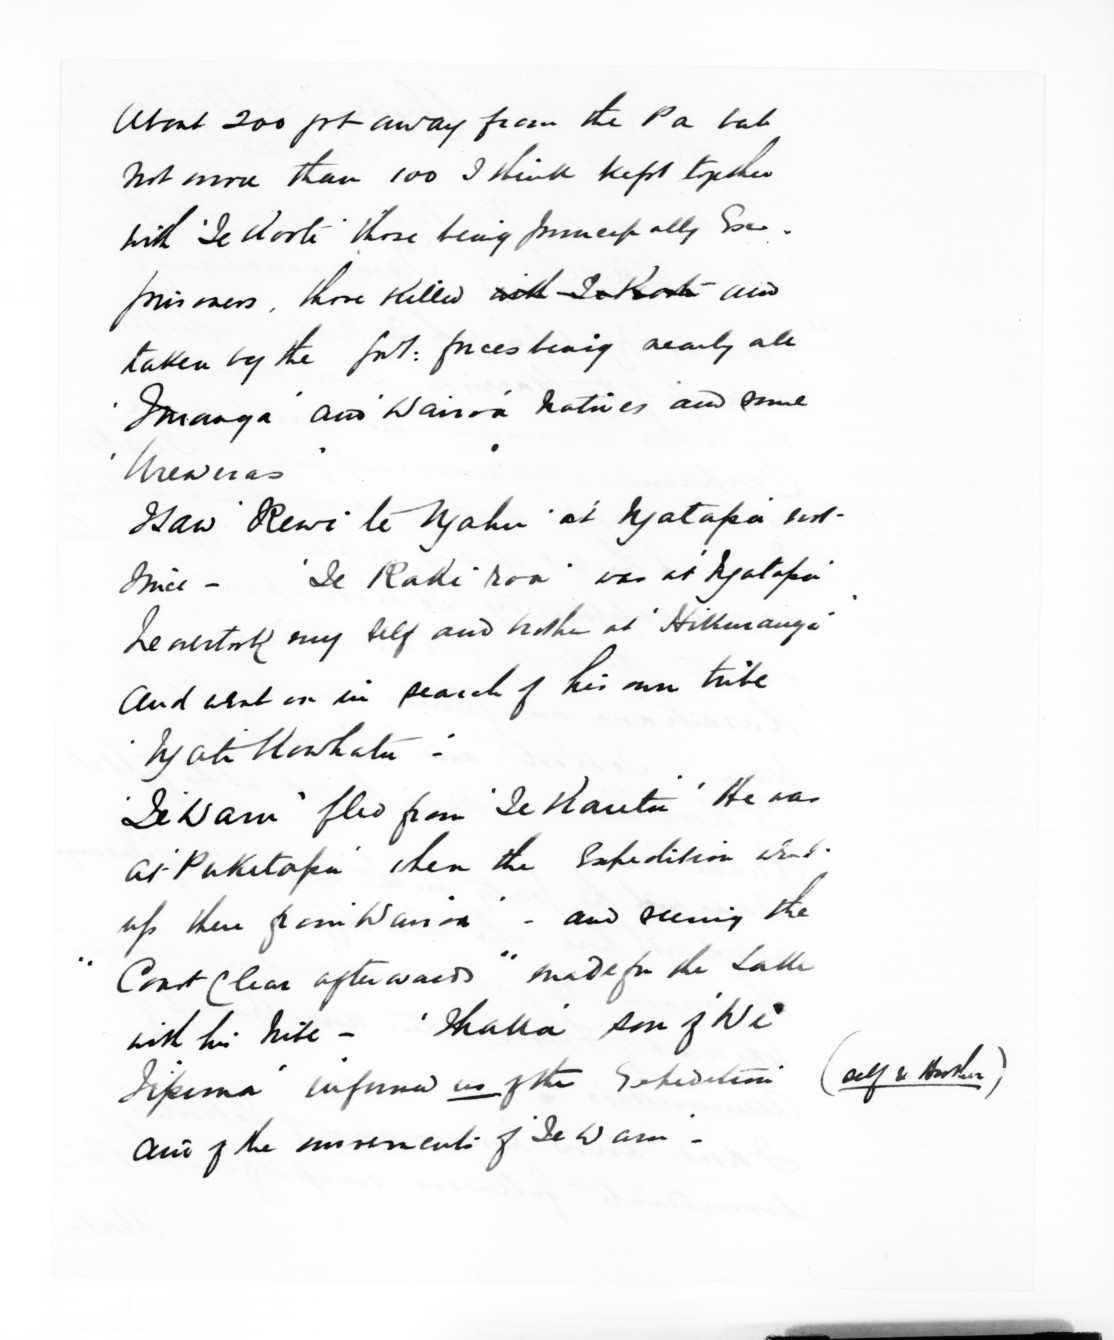 About 200 got away from the Pa but
not more than 100 I think kept together
with 'Te Kooti' those being principally Ex-
prisoners, those killed with Te Kooti and
taken by the Govt: forces being nearly all
and 'Wairoa' Natives and some
'Ureweras'
I saw 'Rewi te Ngahu' at Ngatapa not
since - 'Te Raki roa' was at 'Ngatapa'
he overtook my self and brother at 'Hikurangi'
and went on in search of his own tribe
'Ngati Kowhatu' -
'Te Waru' fled from 'Te Kareta' He was
at 'Puketapa' when the Expedition went
up there from 'Wairoa' - and seeing the
"Coast Clear afterwards" made for the Lake
with his tribe - 'Ihaka' son of 'Wi
Tipuna' informed us of the Expedition (self & brother)
and of the movements of 'Te Waru' -